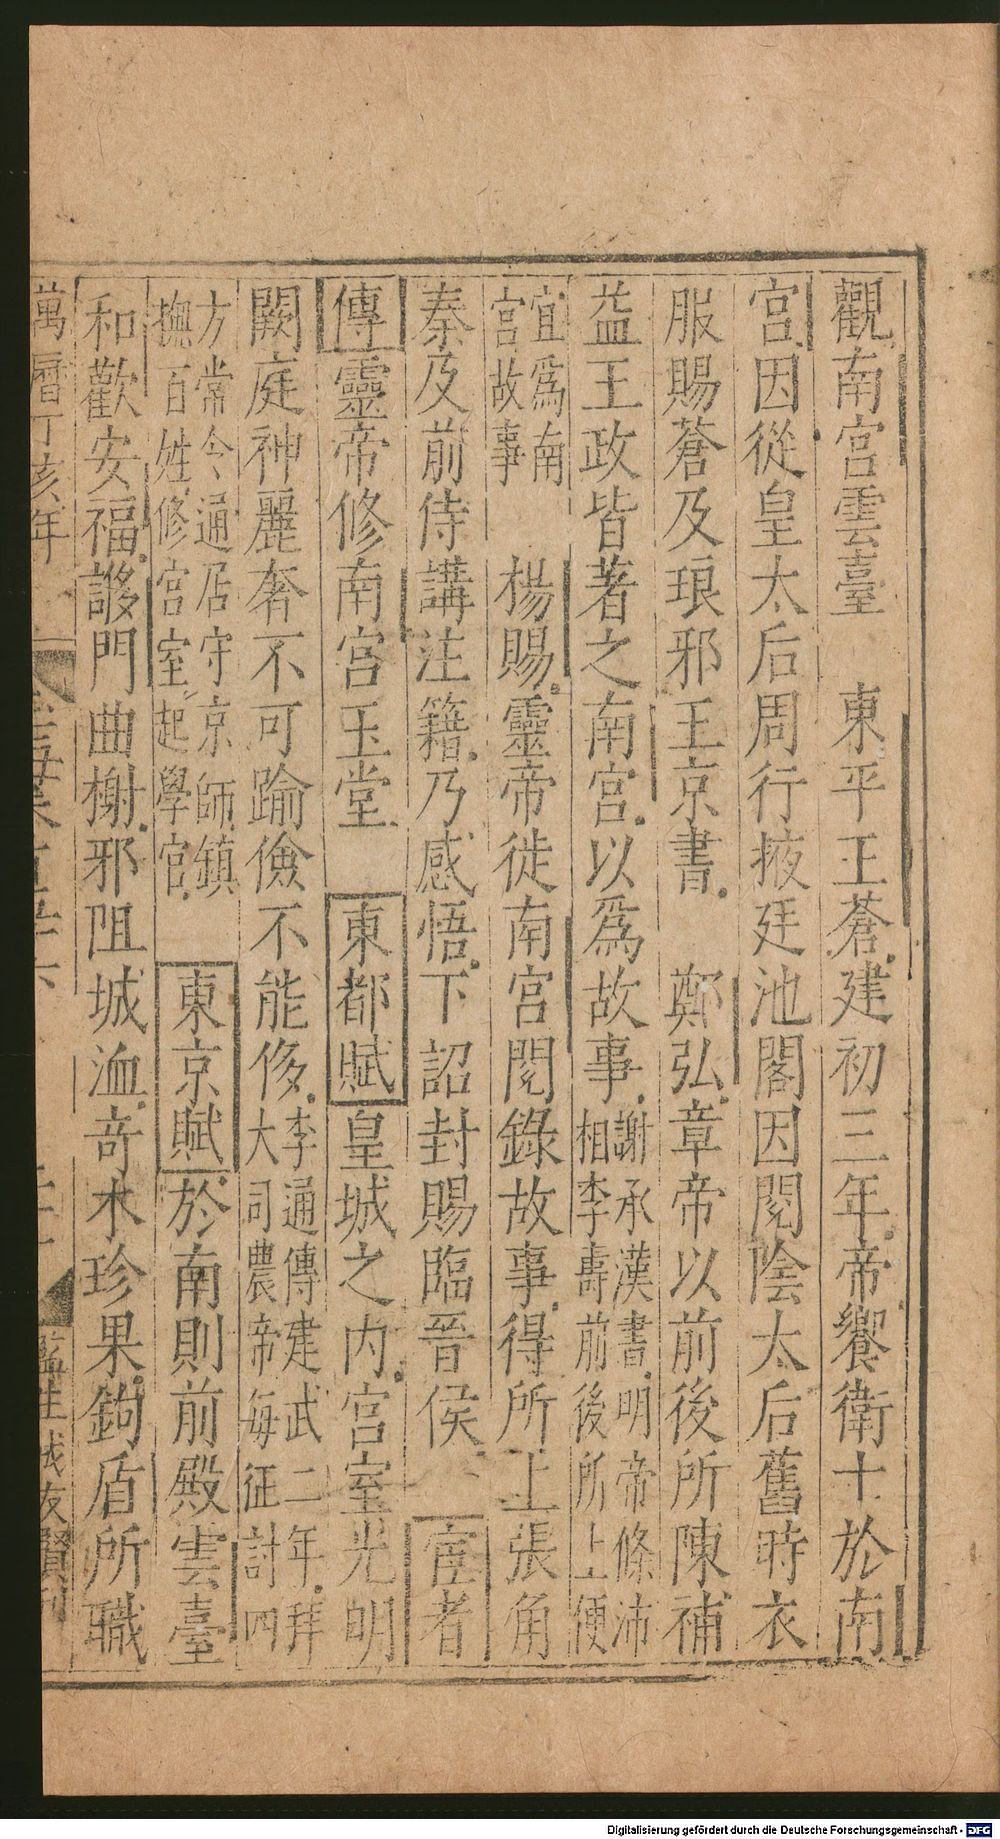 觀南宮雲臺　東平王蒼建初三年帝饗衛士於南
宮因從皇太后周行掖廷池閣因閱陰太后舊時衣
服賜蒼及琅邪王京書　鄭弘章帝以前後所陳補
益王政皆著之南宮以爲故事謝承漢書明帝條沛
相李壽前後所上便
宜爲南
宮故事　楊賜靈帝徙南宮閱錄故事得所上張角
奏及前侍講注籍乃感悟下詔封賜臨晉侯　宦者
傳靈帝修南宮玉堂　東都賦皇城之內宮室光明
闕庭神麗奢不可踰儉不能侈李通傳建武二年拜
大司農帝每征討四
方常令通居守京師鎮
撫百姓修宮室起學官　東京賦於南則前殿雲臺
和歡安福謻門曲榭邪阻城洫奇木珍果鉤盾所職
萬曆丁亥年
監生戚友賢刊
Digitalisierung gefördert durch die Deutsche Forschungsgemeinschaft - DFG